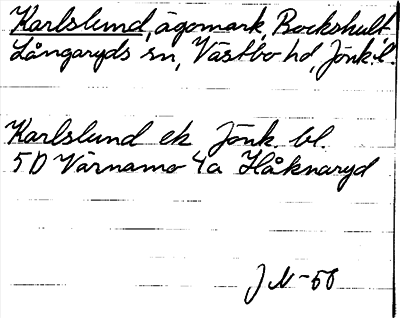 Karlslund, ägomark, Bockshult
Långaryds sn, Västbo hd, Jönk. l.
Karlslund ek Jönk. bl.
5D Värnamo 4a Håknaryd
J N-58